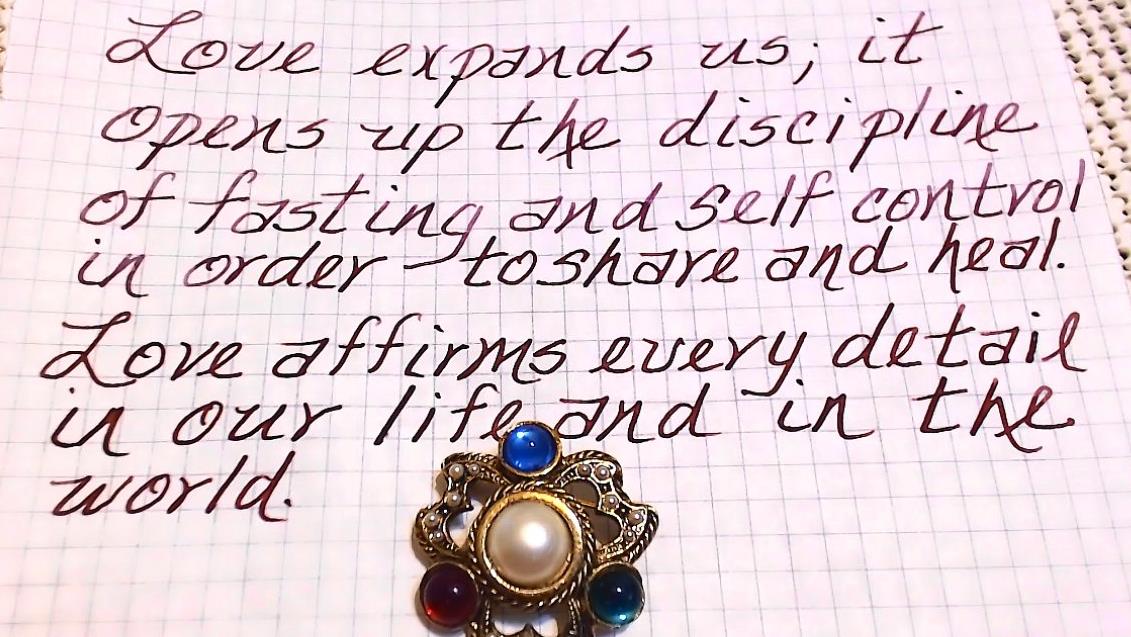 Love expands us; it
opens up the discipline
of fasting and self control
in order to share and heal.
Love affirms every detail
in our life and in the
world.